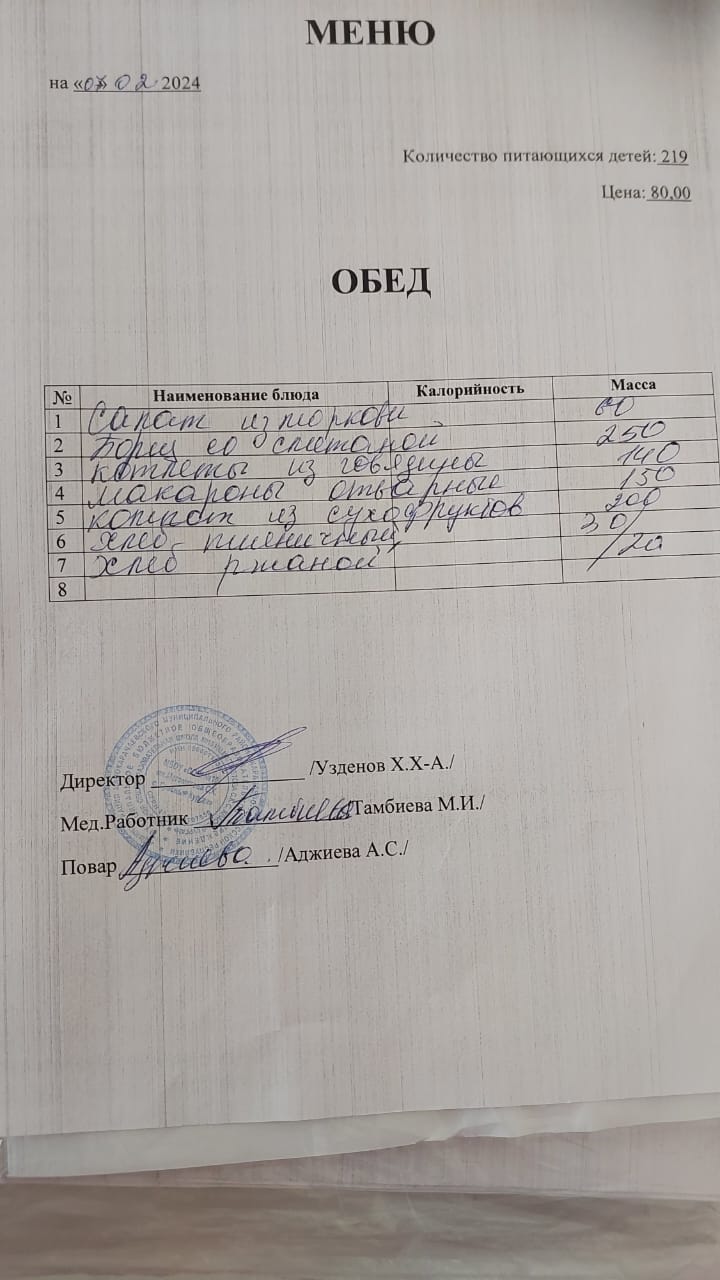 МЕНЮ
на «07» 02 2024
Количество питающихся детей: 219
Цена: 80,00
ОБЕД
№ Наименование блюда Калорийность Масса
1 Салат из моркови 60
2 Борщ со сметаной 250
3 котлеты из говядины 140
4 макароны отварные 150
5 компот из сухофруктов 200
6 Хлеб пшеничный 30/
7 Хлеб ржаной /20
8
Директор /Узденов Х.Х-А./
Мед.Работник Тамбиева /Тамбиева М.И./
Повар Аджиева /Аджиева А.С./